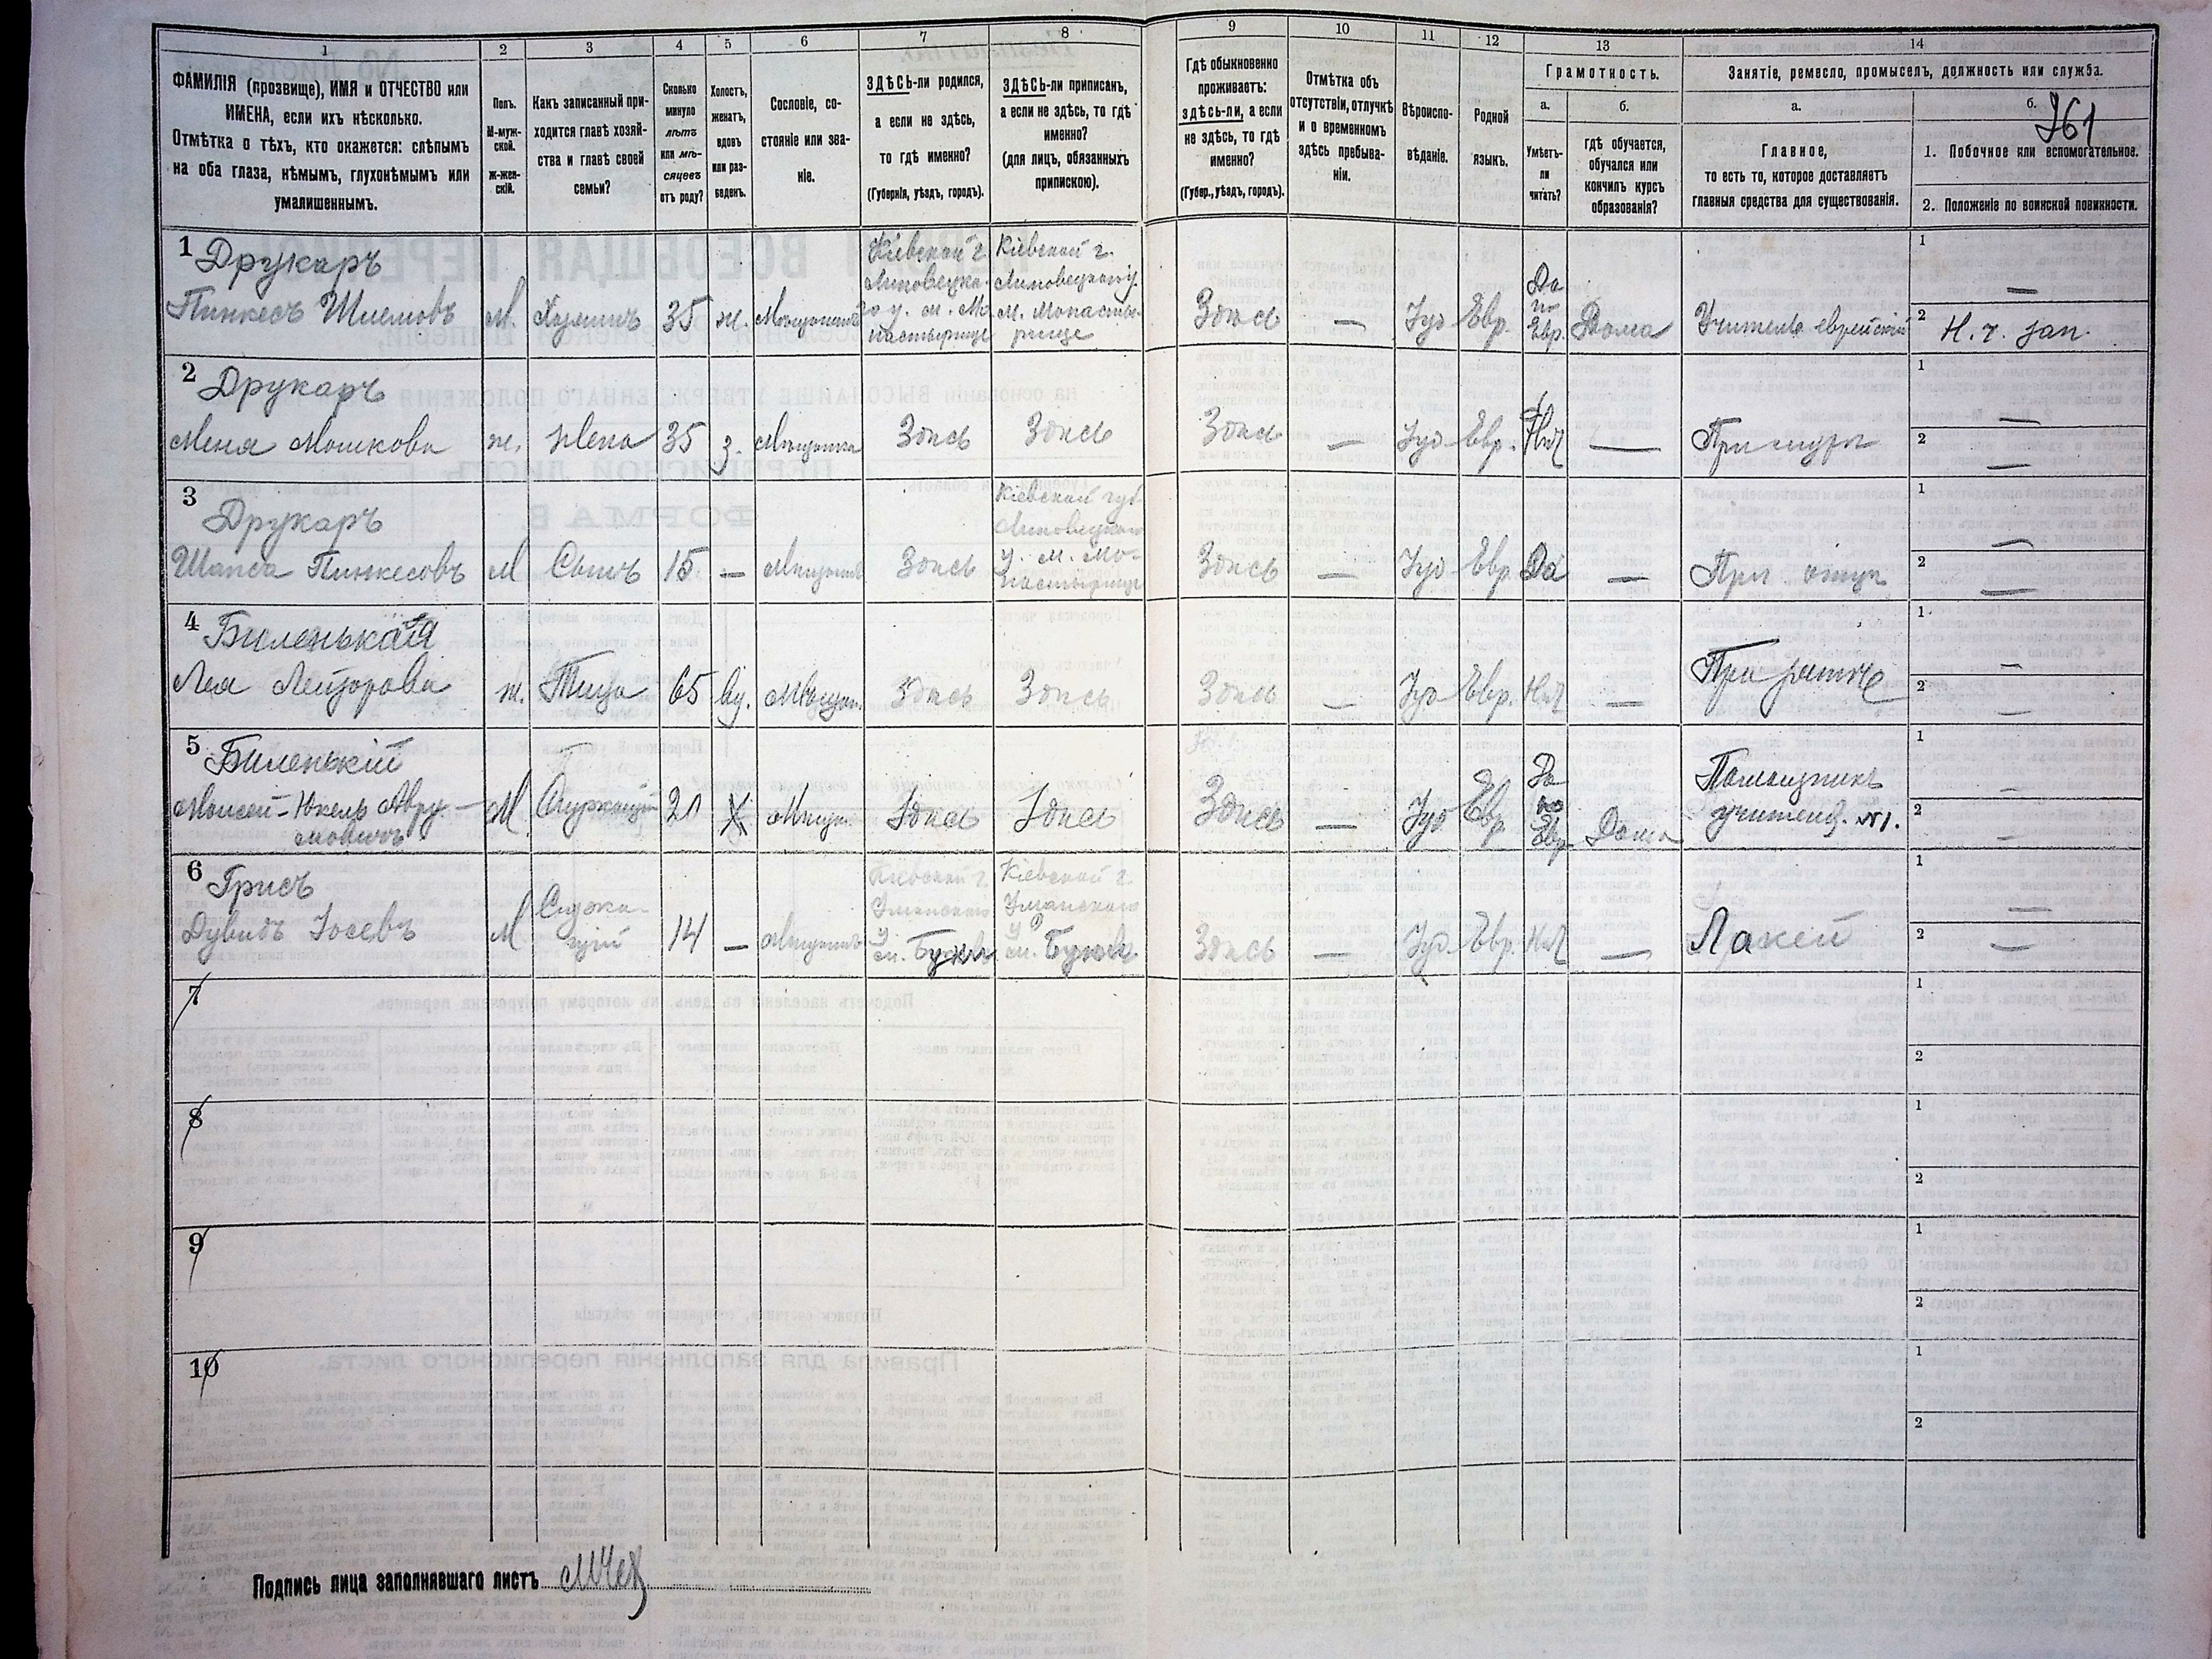 1 2 3 4 5 6 7 8 9 10 11 12 13 14
ФАМИЛІЯ (прозвище), ИМЯ и ОТЧЕСТВО или
ИМЕНА, если ихъ нѣсколько.
Отмѣтка о тѣхъ, кто окажется: слѣпымъ
на оба глаза, нѣмымъ, глухонѣмымъ или
умалишеннымъ.
Полъ.
М-муж-
ской.
Ж-жен-
скій.
Какъ записанный при-
ходится главѣ хозяй-
ства и главѣ своей
семьи?
Сколько
минуло
лѣтъ
или мѣ-
сяцевъ
отъ роду?
Холостъ,
женатъ,
вдовъ
или раз-
веденъ.
Сословіе, со-
стояніе или зва-
ніе.
ЗДѢСЬ-ли родился,
а если не здѣсь,
то гдѣ именно?
(Губернія, уѣздъ, городъ).
ЗДѢСЬ-ли приписанъ,
а если не здѣсь, то гдѣ
именно?
(для лицъ, обязанныхъ
припискою).
Гдѣ обыкновенно
проживаетъ:
здѣсь-ли, а если
не здѣсь, то гдѣ
именно?
(Губер., уѣздъ, городъ).
Отмѣтка объ
отсутствіи, отлучкѣ
и о временномъ
здѣсь пребыва-
ніи.
Вѣроиспо-
вѣданіе.
Родной
языкъ.
Грамотность.
а.
Умѣетъ-
ли
читать?
б.
гдѣ обучается,
обучался или
кончилъ курсъ
образованія?
Занятіе, ремесло, промыселъ, должность или служба.
а.
Главное,
то есть то, которое доставляетъ
главныя средства для существованія.
б.
261
1. Побочное или вспомогательное.
2. Положеніе по воинской повинности.
1 Друкаръ
Пинкесъ
М.
35
ж.
Кіевской г.
Липовецка-
го у. м. Мо-
настырище
Кіевской г.
Липовецкаго у.
м. Монасты-
рище
Здѣсь
—
Іуд
Евр.
Да
по
Евр.
Дома
Учитель еврейскій
1 —
2
2 Друкаръ
Меня Мошкова
ж.
Жена
35
з.
Мѣщанка
Здѣсь
Здѣсь
Здѣсь
—
Іуд
Евр.
Нѣт
—
При мужѣ
1 —
2 —
3 Друкаръ
Шапса Пинкесовъ
М
Сынъ
15
—
Мѣщанинъ
Здѣсь
Кіевской губ.
Липовецкаго
у. м. Мо-
настырище
Здѣсь
—
Іуд
Евр.
Да
—
При отцѣ
1 —
2 —
4 Биленькая
Лея Лейзорова
ж.
65
вд.
Мѣщан.
Здѣсь
Здѣсь
Здѣсь
—
Іуд
Евр.
Нѣт
—
При зятѣ
1 —
2 —
5 Биленькій
Моисей-Юкель Авру-
мовичъ
М
Х
Мѣщ.
Здѣсь
Здѣсь
Здѣсь
—
Іуд
Евр.
Да
по
Евр
Дома
Помощникъ
учителя. №1.
1 —
2 —
6 Грисъ
Дувидъ Іосевъ
М
Служа-
щій
14
—
Мѣщанинъ
Кіевской г.
Уманскаго
у.
м. Буки
Кіевской г.
Уманскаго
у
м. Буки
Здѣсь
—
Іуд.
Евр.
Нѣт
—
Лакей
1 —
2 —
7
1
2
8
1
2
9
1
2
10
1
2
Подпись лица заполнявшаго листъ